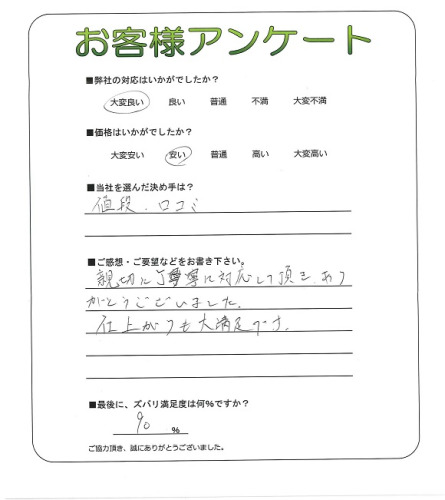 お客様アンケート
■弊社の対応はいかがでしたか？
大変良い 良い 普通 不満 大変不満
■価格はいかがでしたか？
大変安い 安い 普通 高い 大変高い
■当社を選んだ決め手は？
値段、口コミ
■ご感想・ご要望などをお書き下さい。
親切に丁寧に対応して頂き、あり
がとうございました。
仕上がりも大満足です。
■最後に、ズバリ満足度は何％ですか？
90 ％
ご協力頂き、誠にありがとうございました。